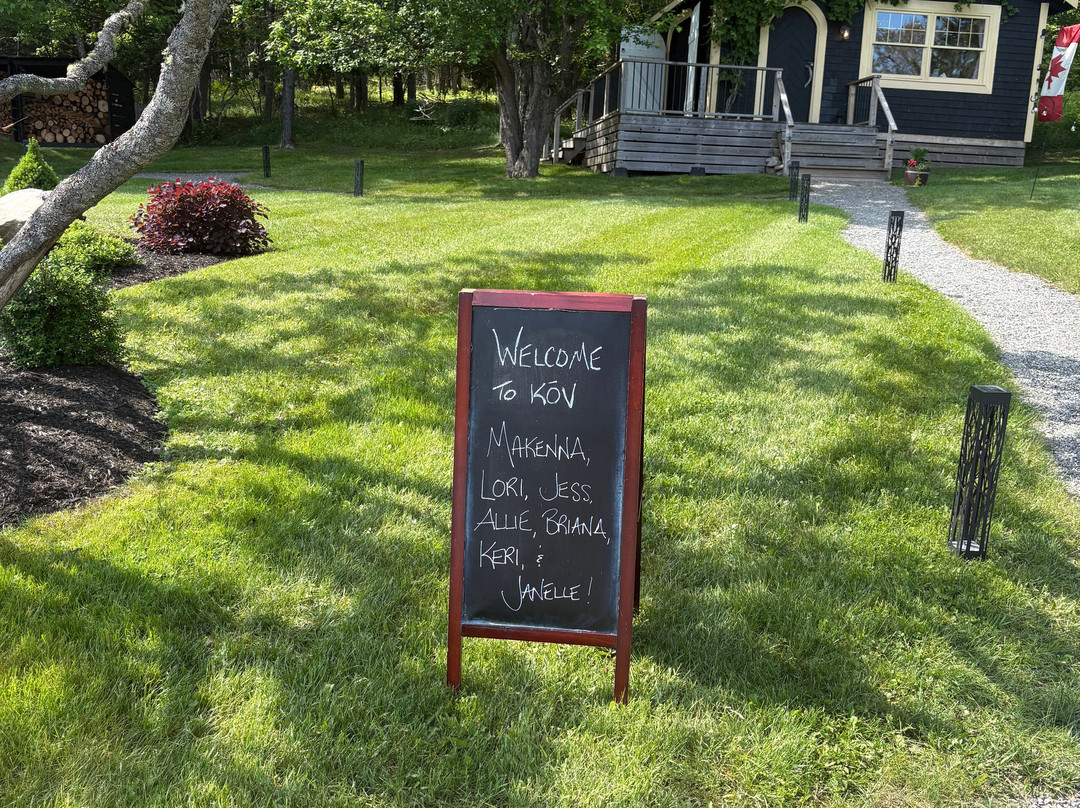 WELCOME
TO KŌV
MAKENNA,
LORI, JESS,
ALLIE, BRIANA,
KERI, &
JANELLE!